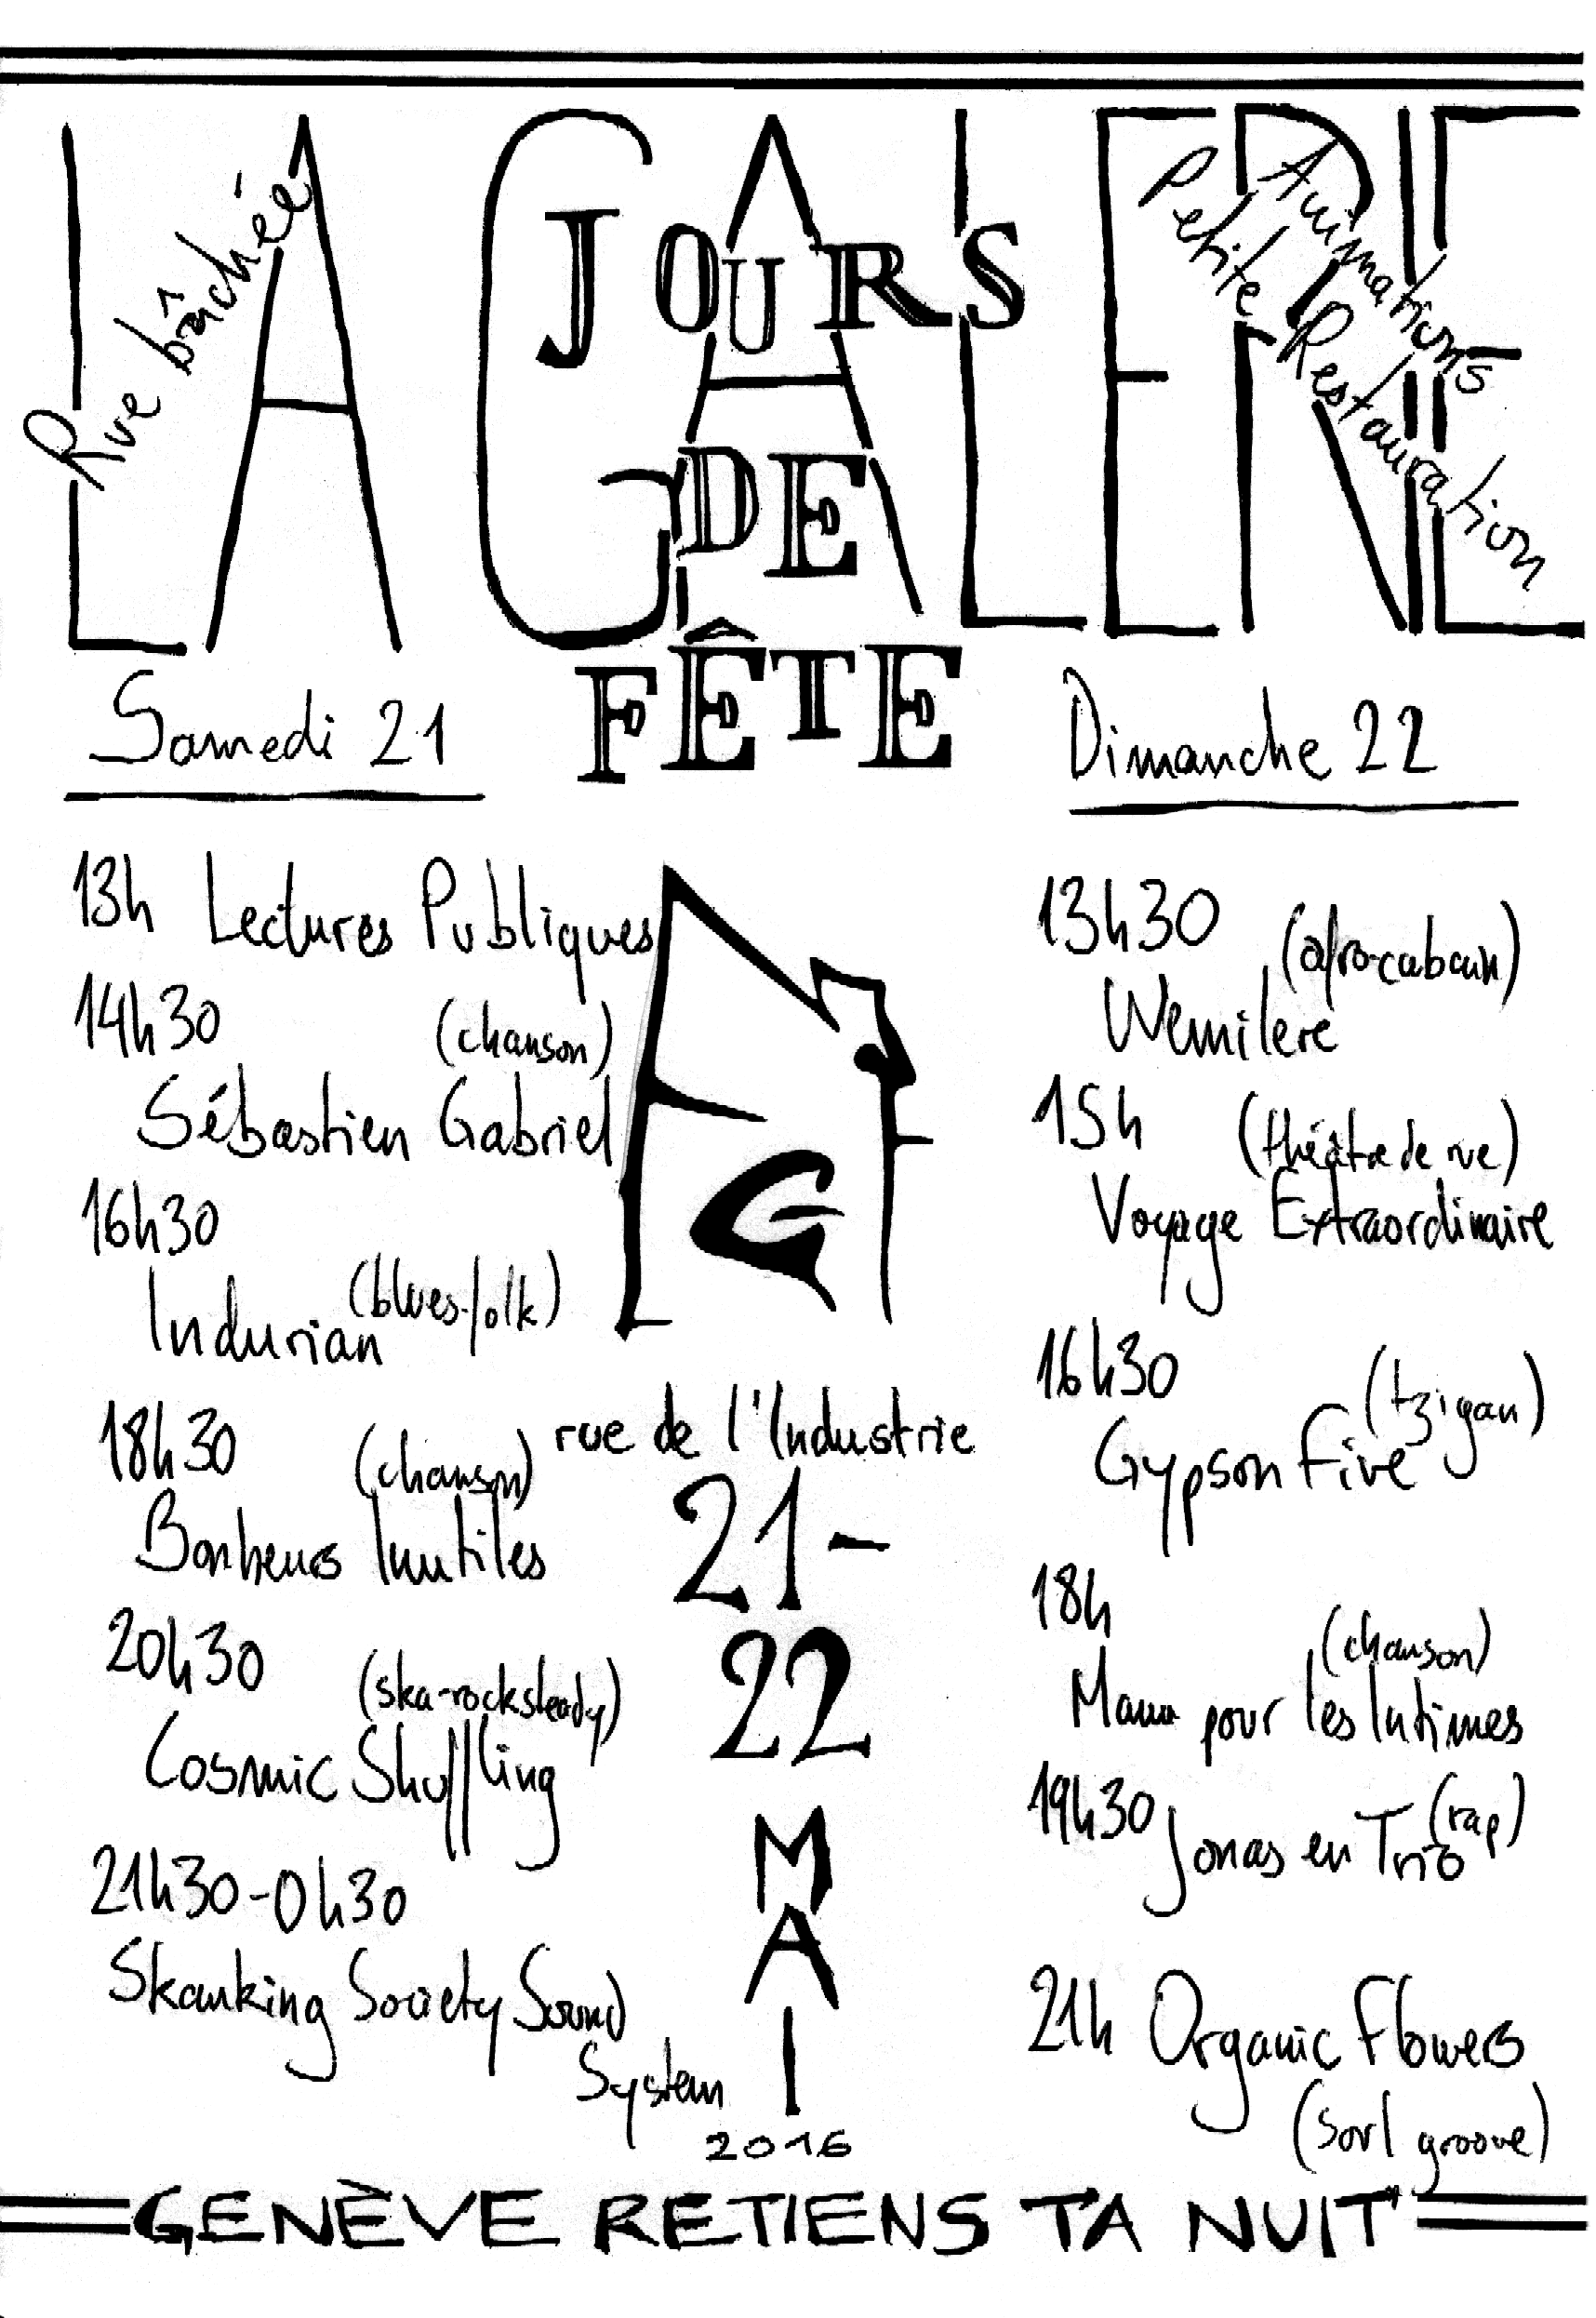 LA GALERIE
Rue bâchée
Animations
Petite Restauration
JOURS
DE
FÊTE
Samedi 21
13h Lectures Publiques
14h30 (chanson)
Sébastien Gabriel
16h30
Indurian (blues-folk)
18h30 (chanson)
Bonheurs Inutiles
20h30 (ska-rocksteady)
Cosmic Shuffling
21h30-0h30
Skanking Society Sound
System
G
rue de l'Industrie
21-
22
MAI
2016
Dimanche 22
13h30 (afro-cubain)
Wemilere
15h (théâtre de rue)
Voyage Extraordinaire
16h30 (tzigan)
Gypson Five
18h (chanson)
pour les Intimes
19h30 Jonas en Trio (rap)
21h Organic Flowers
(soul groove)
GENÈVE RETIENS TA NUIT